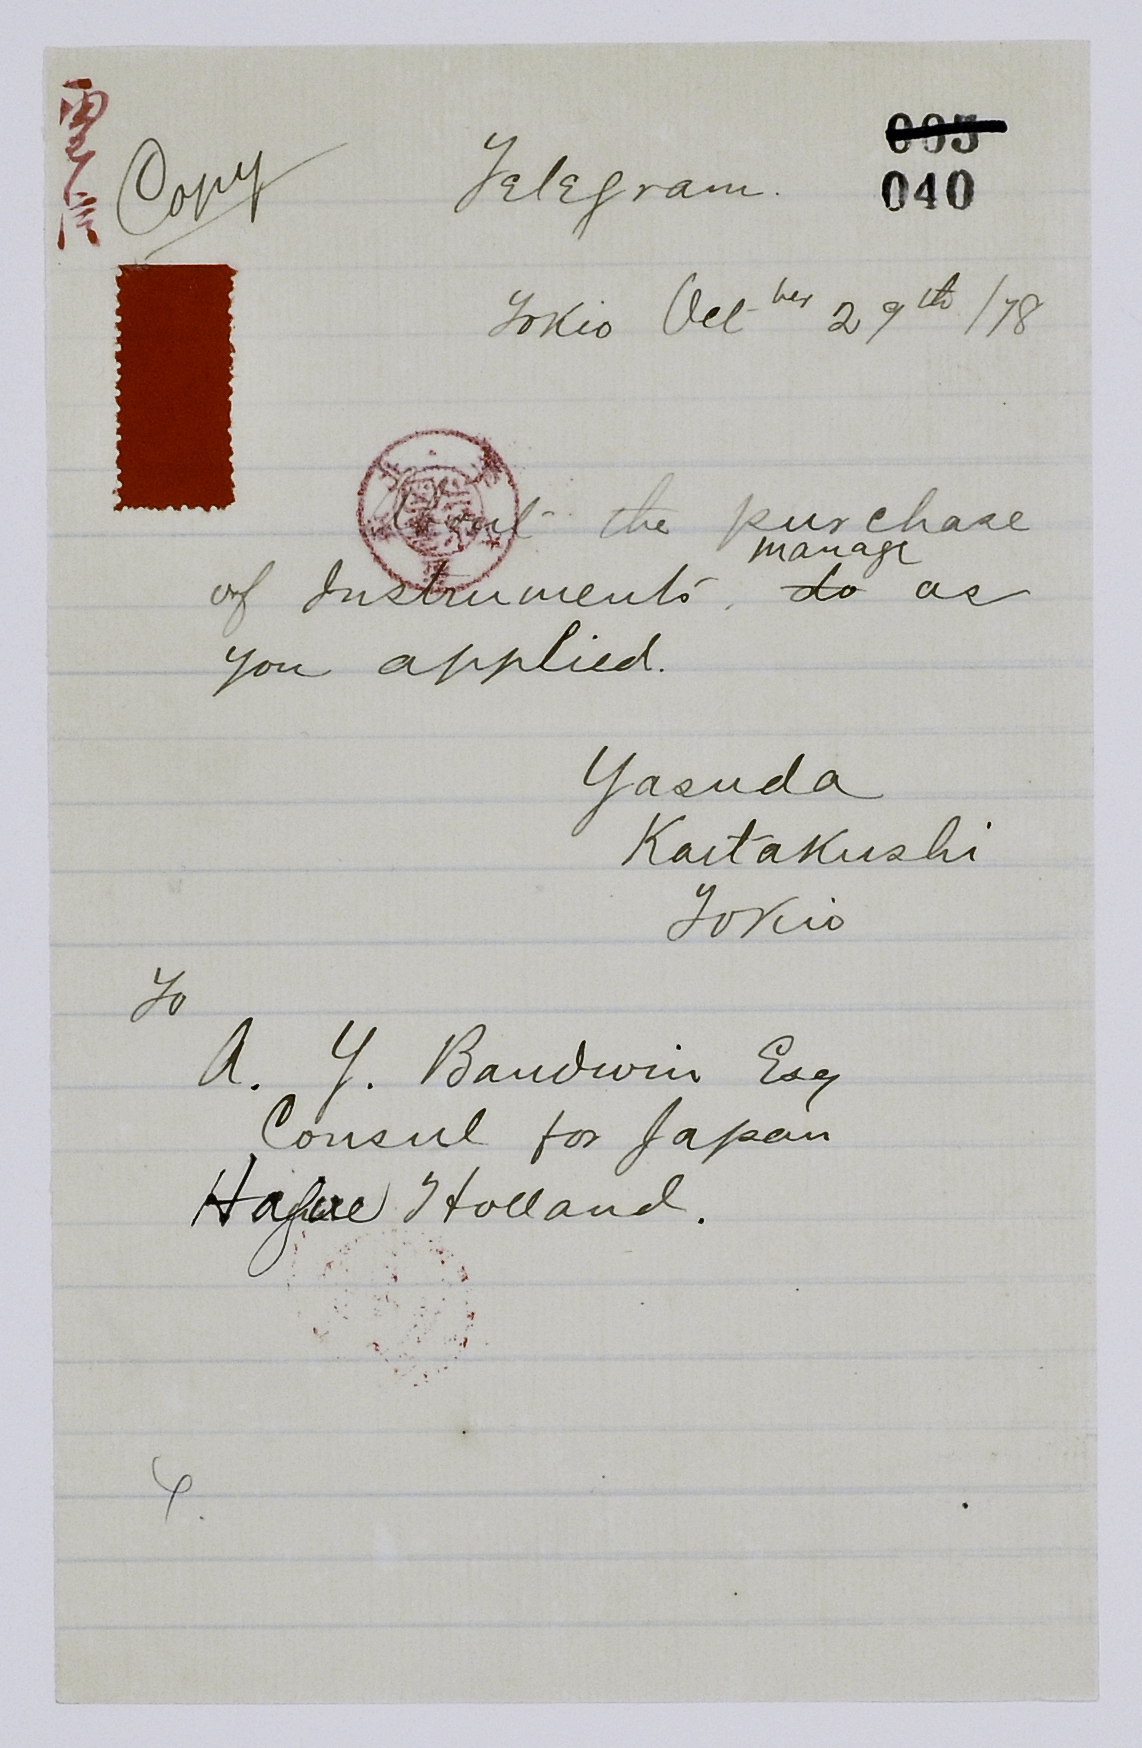 電信
Copy
Telegram.
005
040
Tokio Oct ber 29th /78
the purchase
manage
of Instruments, do as
you applied.
Yasuda
Kaitakushi
Tokio
To
A. J. Baudwin Esq
Consul for Japan
Hague Holland.